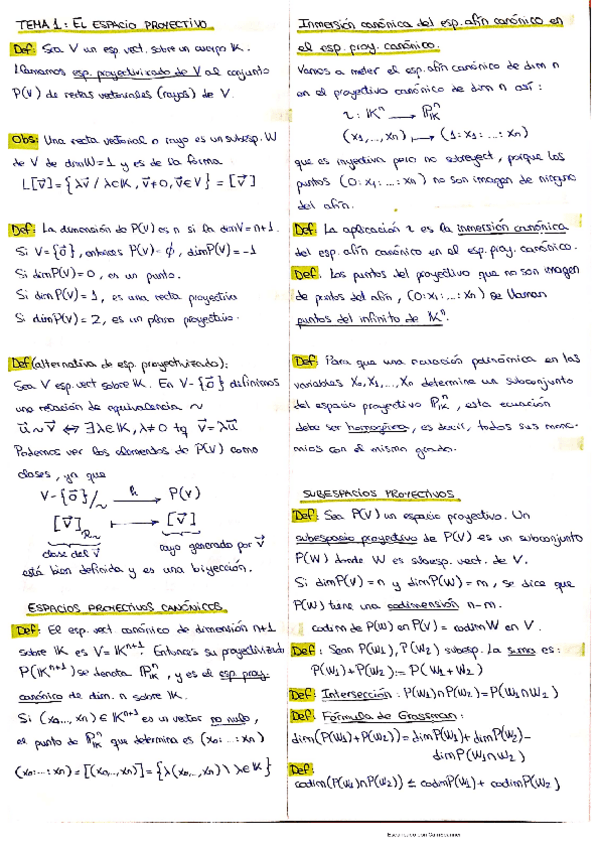 TEMA 1: EL ESPACIO PROYECTIVO
Def: Sea V un esp. vect. sobre un cuerpo K.
Llamamos esp. proyectivizado de V al conjunto
P(V) de rectas vectoriales (rayos) de V.
Obs: Una recta vectorial o rayo es un subesp. W
de V de dimW=1 y es de la forma
L[v⃗]={λv⃗ / λ∈K, v⃗≠0, v⃗∈V} = [v⃗]
Def: La dimensión de P(V) es n si la dimV=n+1.
Si V={0⃗}, entonces P(V)=∅, dimP(V)=-1
Si dimP(V)=0, es un punto.
Si dimP(V)=1, es una recta proyectiva
Si dimP(V)=2, es un plano proyectivo.
Def (alternativa de esp. proyectivizado):
Sea V esp. vect sobre K. En V-{0⃗} definimos
una relación de equivalencia ~
u⃗~v⃗ ⇔ ∃λ∈K, λ≠0 tq v⃗=λu⃗
Podemos ver los elementos de P(V) como
clases, ya que
V-{0⃗}/~ h→ P(V)
[v⃗]R~ ↦ [v⃗]
clase del v⃗ rayo generado por v⃗
está bien definida y es una biyección.
ESPACIOS PROYECTIVOS CANÓNICOS
Def: El esp. vect canónico de dimensión n+1
sobre K es V=K^{n+1}. Entonces su proyectivizado
P(K^{n+1}) se denota P_K^n, y es el esp proy.
canónico de dim. n sobre K.
Si (x0,..., xn) ∈ K^{n+1} es un vector no nulo,
el punto de P_K^n que determina es (x0:...:xn)
(x0:...:xn)=[(x0,..,xn)]={λ(x0,..,xn) \ λ∈K}
Inmersión canónica del esp. afín canónico en
el esp. proy. canónico.
Vamos a meter el esp. afín canónico de dim n
en el proyectivo canónico de dim n así:
τ: K^n → P_K^n
(x1,...,xn) ↦ (1:x1:...:xn)
que es inyectiva pero no sobreyect, porque los
puntos (0:x1:...:xn) no son imagen de ninguno
del afín.
Def: La aplicación τ es la inmersión canónica
del esp. afín canónico en el esp. proy. canónico.
Def: Los puntos del proyectivo que no son imagen
de puntos del afín, (0:x1:...:xn) se llaman
puntos del infinito de K^n.
Def: Para que una ecuación polinómica en las
variables X0,X1,..., Xn determine un subconjunto
del espacio proyectivo P_K^n, esta ecuación
debe ser homogénea, es decir, todos sus mono-
mios con el mismo grado.
SUBESPACIOS PROYECTIVOS
Def: Sea P(V) un espacio proyectivo. Un
subespacio proyectivo de P(V) es un subconjunto
P(W) donde W es subesp. vect. de V.
Si dimP(V)=n y dimP(W)=m, se dice que
P(W) tiene una codimensión n-m.
codim de P(W) en P(V) = codim W en V.
Def: Sean P(W1), P(W2) subesp. La suma es:
P(W1)+P(W2):= P(W1+W2)
Def: Intersección: P(W1)∩P(W2)=P(W1∩W2)
Def: Fórmula de Grassman:
dim(P(W1)+P(W2))=dimP(W1)+dimP(W2)-
dimP(W1∩W2)
Def:
codim(P(W1)∩P(W2)) ≤ codimP(W1)+ codimP(W2)
Escaneado con CamScanner